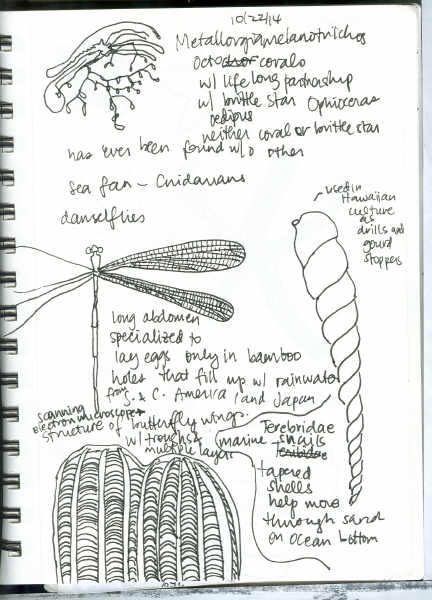 10/22/14
Metallorgia melanotrichos
Octo coral
w/ life long partnership
w/ brittle star Ophiocreas
oedipus
neither coral or brittle star
has ever been found w/o other
Sea fan - Cnidarians
damselflies
used in
Hawaiian
culture
as
drills and
gourd
stoppers
long abdomen
specialized to
lay eggs only in bamboo
holes that fill up w/ rainwater
from S. & C. America, and Japan
scanning
electron microscope
structure of butterfly wings
w/ troughs &
multiple layers
Terebridae
(marine snails
tapered
shells
help move
through sand
on ocean bottom